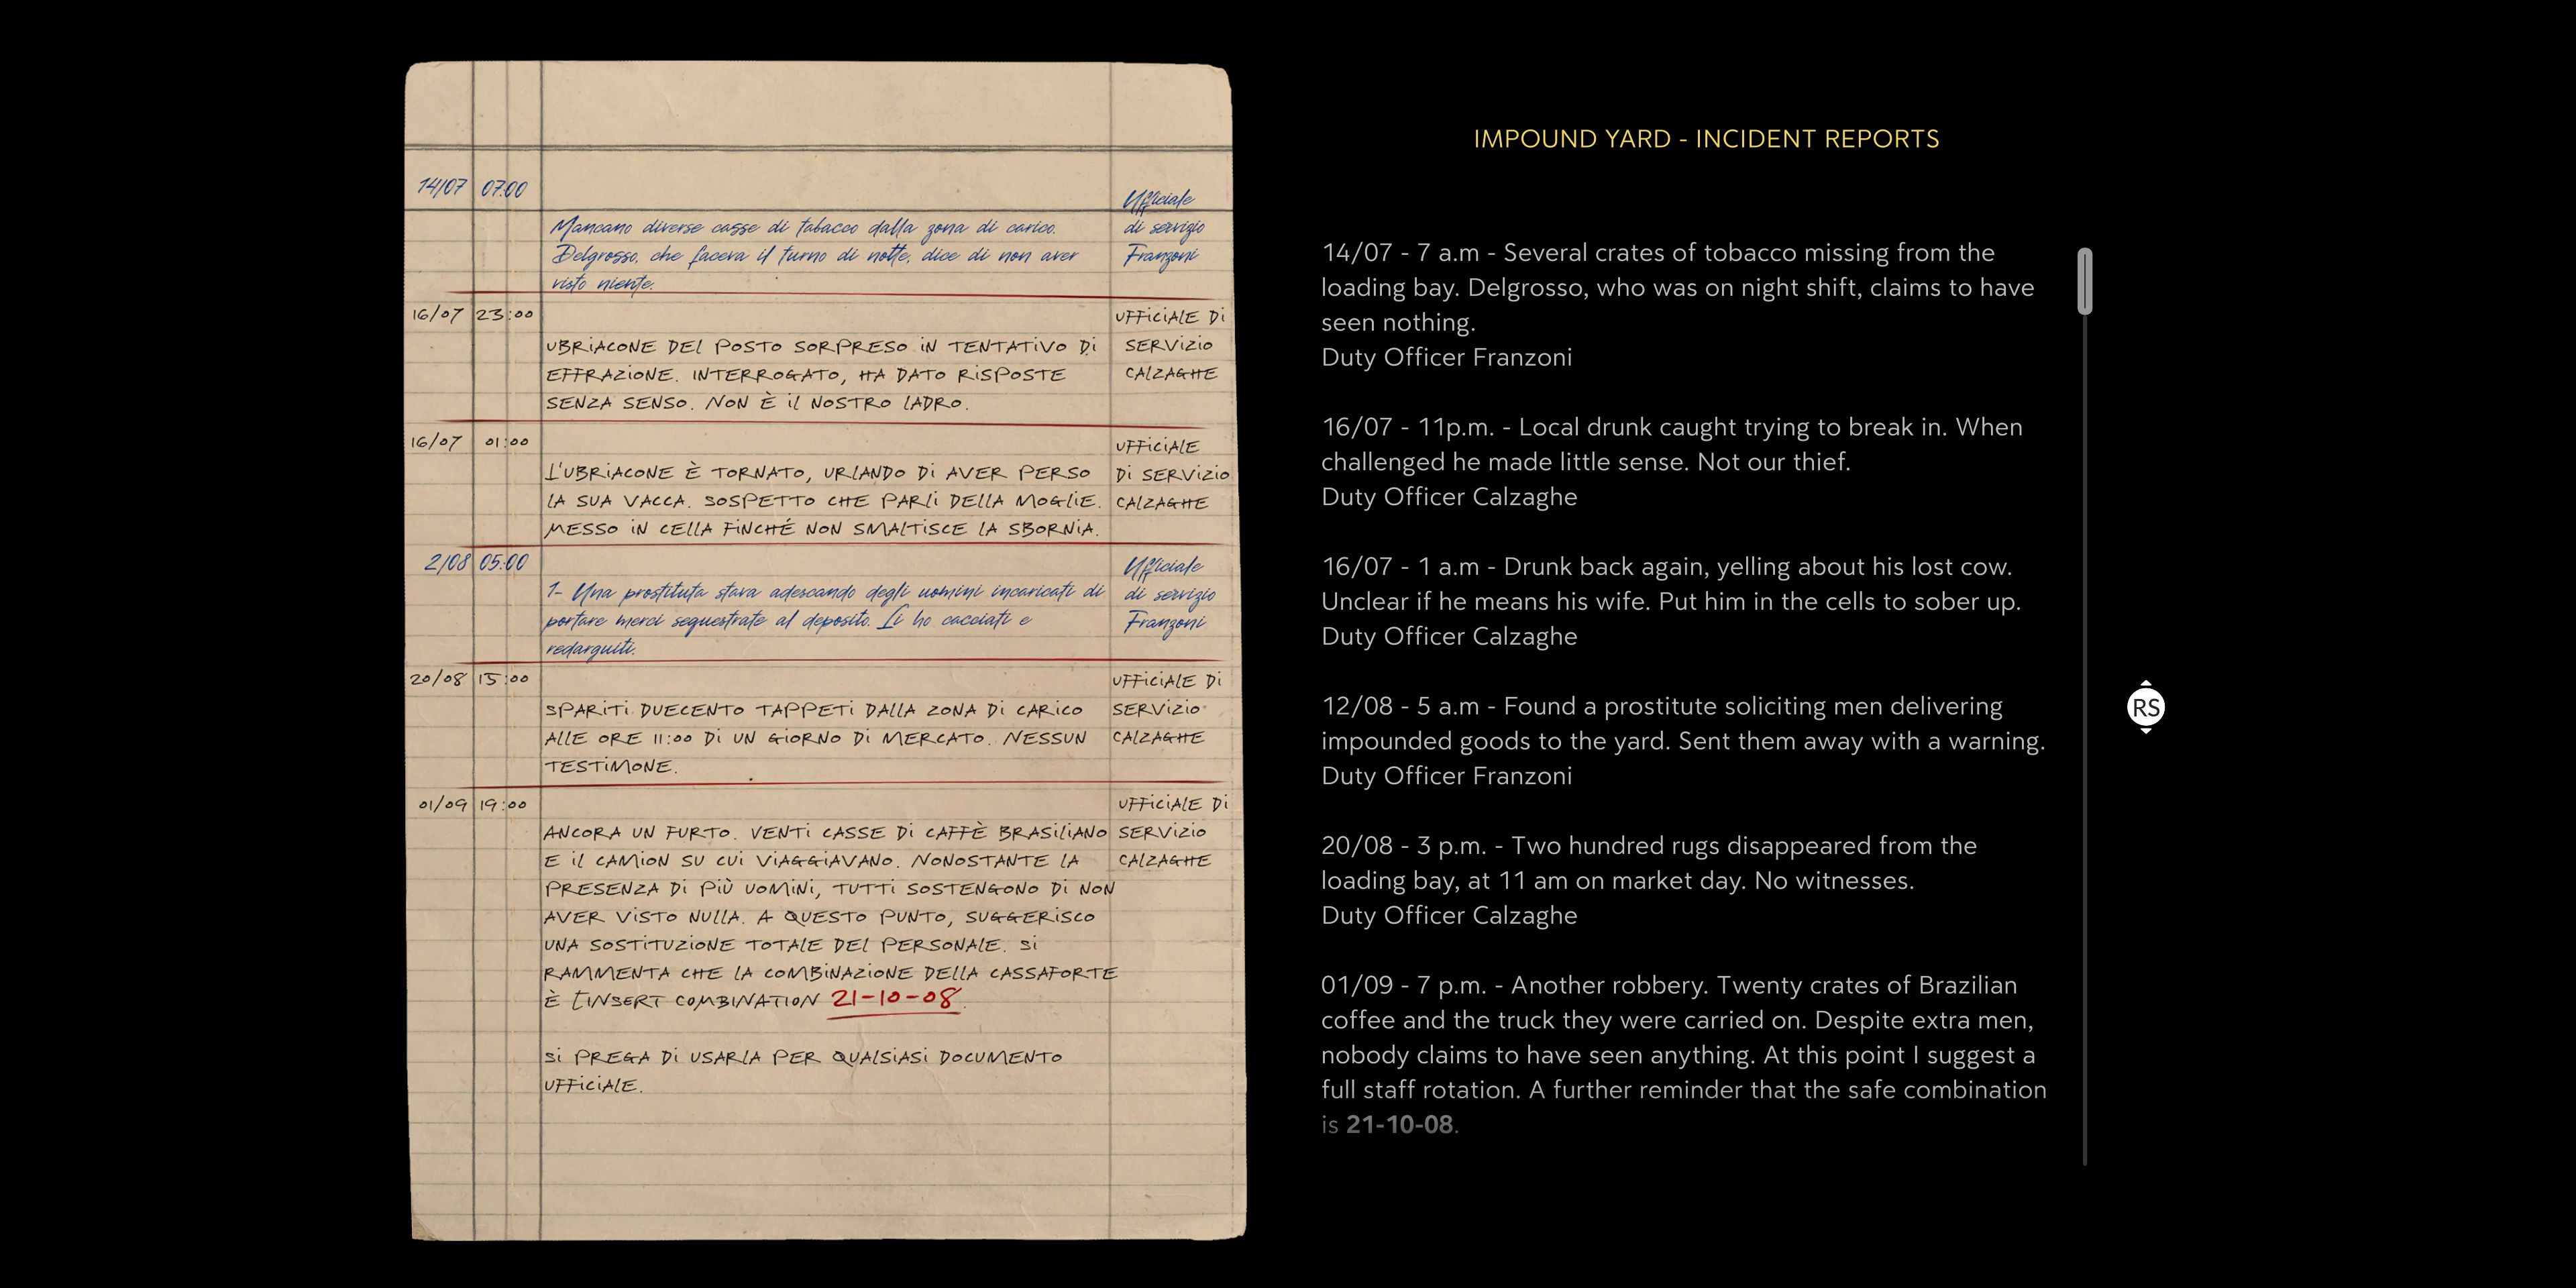 14/07 07.00
Ufficiale
Mancano diverse casse di tabacco dalla zona di carico.
di servizio
Delgrosso, che faceva il turno di notte, dice di non aver
Franzoni
visto niente.
16/07 23:00
UFFICIALE DI
UBRIACONE DEL POSTO SORPRESO IN TENTATIVO DI
SERVIZIO
EFFRAZIONE. INTERROGATO, HA DATO RISPOSTE
CALZAGHE
SENZA SENSO. NON È IL NOSTRO LADRO.
16/07 01:00
UFFICIALE
L'UBRIACONE È TORNATO, URLANDO DI AVER PERSO
DI SERVIZIO
LA SUA VACCA. SOSPETTO CHE PARLI DELLA MOGLIE.
CALZAGHE
MESSO IN CELLA FINCHÉ NON SMALTISCE LA SBORNIA.
2/08 05:00
Ufficiale
1- Una prostituta stava adescando degli uomini incaricati di
di servizio
portare merci sequestrate al deposito. Li ho cacciati e
Franzoni
redarguiti.
20/08 15:00
UFFICIALE DI
SPARITI DUECENTO TAPPETI DALLA ZONA DI CARICO
SERVIZIO
ALLE ORE 11:00 DI UN GIORNO DI MERCATO. NESSUN
CALZAGHE
TESTIMONE.
01/09 19:00
UFFICIALE DI
ANCORA UN FURTO. VENTI CASSE DI CAFFÈ BRASILIANO
SERVIZIO
E IL CAMION SU CUI VIAGGIAVANO. NONOSTANTE LA
CALZAGHE
PRESENZA DI PIÙ UOMINI, TUTTI SOSTENGONO DI NON
AVER VISTO NULLA. A QUESTO PUNTO, SUGGERISCO
UNA SOSTITUZIONE TOTALE DEL PERSONALE. SI
RAMMENTA CHE LA COMBINAZIONE DELLA CASSAFORTE
È [INSERT COMBINATION 21-10-08.
SI PREGA DI USARLA PER QUALSIASI DOCUMENTO
UFFICIALE.
IMPOUND YARD - INCIDENT REPORTS
14/07 - 7 a.m - Several crates of tobacco missing from the
loading bay. Delgrosso, who was on night shift, claims to have
seen nothing.
Duty Officer Franzoni
16/07 - 11p.m. - Local drunk caught trying to break in. When
challenged he made little sense. Not our thief.
Duty Officer Calzaghe
16/07 - 1 a.m - Drunk back again, yelling about his lost cow.
Unclear if he means his wife. Put him in the cells to sober up.
Duty Officer Calzaghe
12/08 - 5 a.m - Found a prostitute soliciting men delivering
impounded goods to the yard. Sent them away with a warning.
Duty Officer Franzoni
20/08 - 3 p.m. - Two hundred rugs disappeared from the
loading bay, at 11 am on market day. No witnesses.
Duty Officer Calzaghe
01/09 - 7 p.m. - Another robbery. Twenty crates of Brazilian
coffee and the truck they were carried on. Despite extra men,
nobody claims to have seen anything. At this point I suggest a
full staff rotation. A further reminder that the safe combination
is 21-10-08.
RS